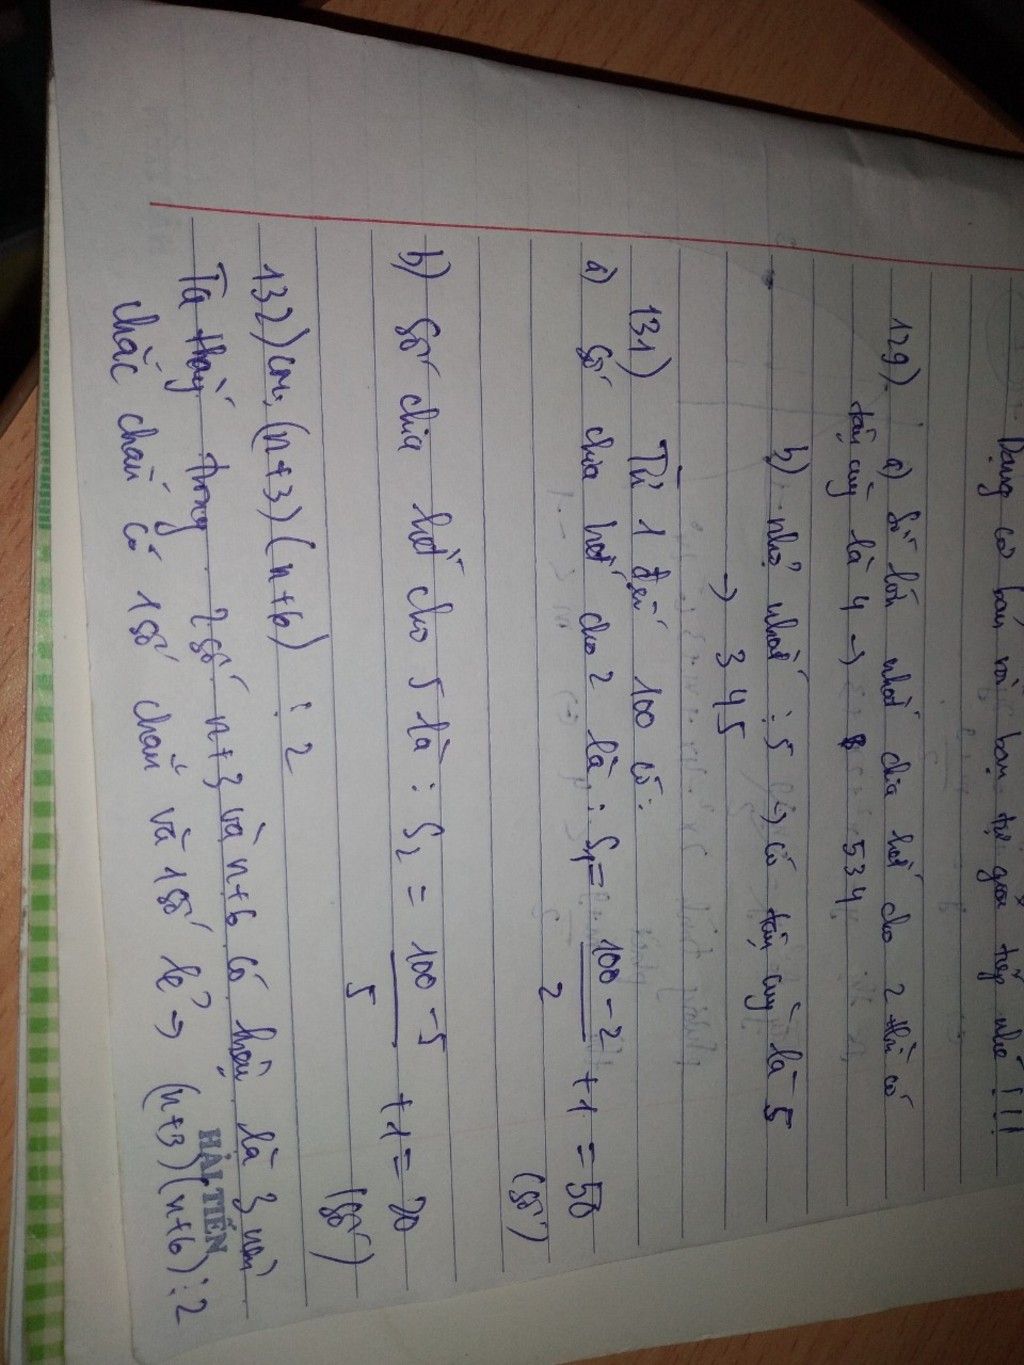 Dạng cơ bản mà bạn tự giải tiếp nhé !!!
129) a) Số lớn nhất chia hết cho 2 thì có
tận cùng là 4 → 534
b) nhỏ nhất ⋮ 5 (→) có tận cùng là 5
→ 345
131) Từ 1 đến 100 có:
a) Số chia hết cho 2 là : S₁ = (100 - 2)/2 + 1 = 50
(số)
b) Số chia hết cho 5 là : S₂ = (100 - 5)/5 + 1 = 20
(số)
132) cm, (n+3)(n+6) ⋮ 2
Ta thấy trong 2 số n+3 và n+6 có hiệu là 3 nên
chắc chắn có 1 số chẵn và 1 số lẻ → (n+3)(n+6) ⋮ 2
HẢI TIẾN